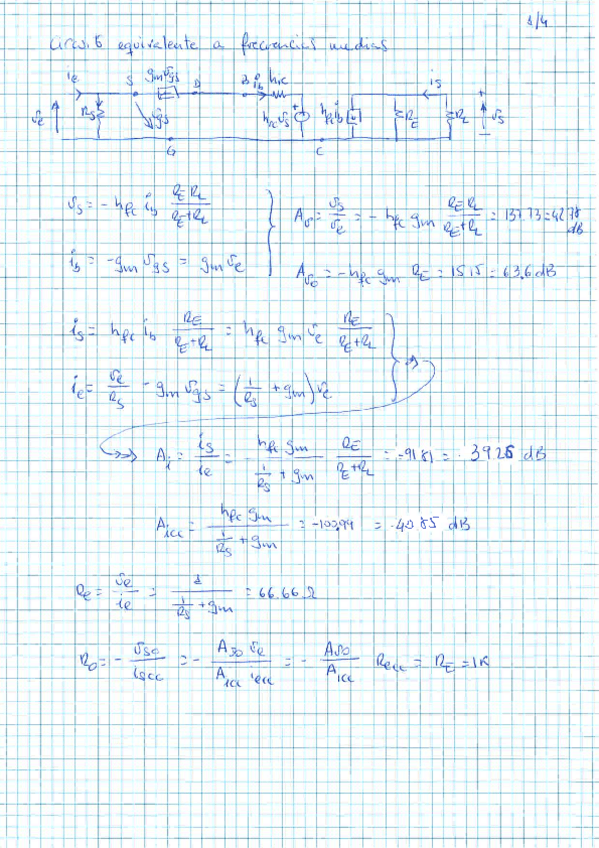 1/4
Circuito equivalente a frecuencias medias
ie S gmvgs D B ib hic is +
ve RS vgs hrcvs + hfcib RE RL vs
G C -
vs = -hfc ib RE RL / (RE+RL)
Av = vs/ve = -hfc gm RE RL / (RE+RL) = 137.73 = 42.78 dB
ib = -gm vgs = gm ve
Avo = -hfc gm RE = 1515 = 63.6 dB
is = hfc ib RE / (RE+RL) = hfc gm ve RE / (RE+RL)
ie = ve/RS - gm vgs = (1/RS + gm) ve
Ai = is/ie = hfc gm / (1/RS + gm) RE / (RE+RL) = -91.81 = 39.26 dB
Aicc = hfc gm / (1/RS + gm) = -100.99 = 40.85 dB
Re = ve/ie = 1 / (1/RS + gm) = 66.66 Ω
Ro = - vso/iscc = - Avo ve / Aicc iecc = - Avo/Aicc Recc = RE = 1K